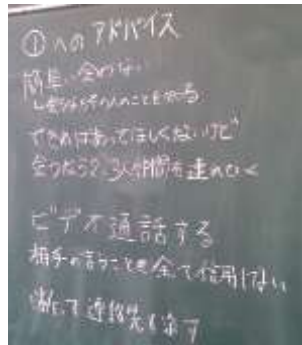 ①へのアドバイス
簡単に会わない
できればあってほしくないけど
会うなら2、3人仲間を連れていく
ビデオ通話する
相手の言うことを全て信用しない
連絡先を消す